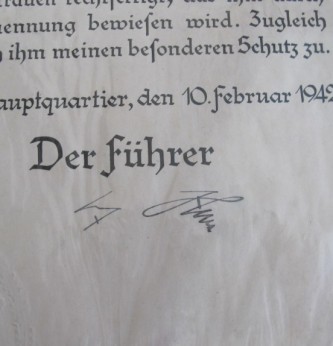 uennung bewiesen wird. Zugleich
ihm meinen besonderen Schutz zu.
auptquartier, den 10. Februar 1942
Der Führer